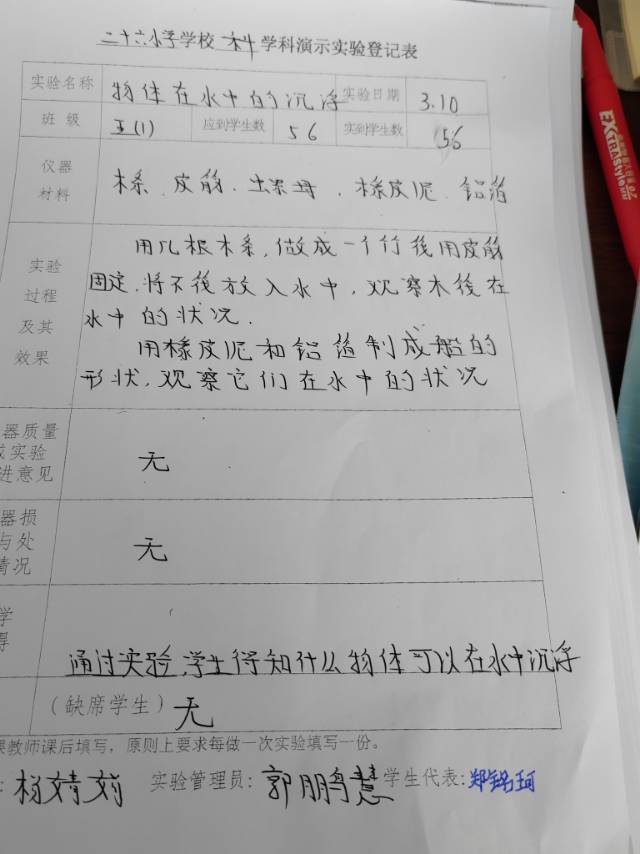 二十六小学学校 科学科演示实验登记表
实验名称 物体在水中的沉浮 实验日期 3.10
班 级 五(1) 应到学生数 56 实到学生数 56
仪器
材料
木条 皮筋 橡皮泥 铝箔
实验
过程
及其
效果
用几根木条,做成一个竹筏用皮筋
固定.将木筏放入水中,观察木筏在
水中的状况.
用橡皮泥和铝箔制成船的
形状.观察它们在水中的状况
器质量
实验
进意见
无
器损
与处
情况
无
学
得
通过实验,学生得知什么物体可以在水中沉浮
(缺席学生) 无
教师课后填写,原则上要求每做一次实验填写一份。
: 杨 实验管理员: 郭鹏慧 学生代表: 郑铭珂
EXTRAStyle